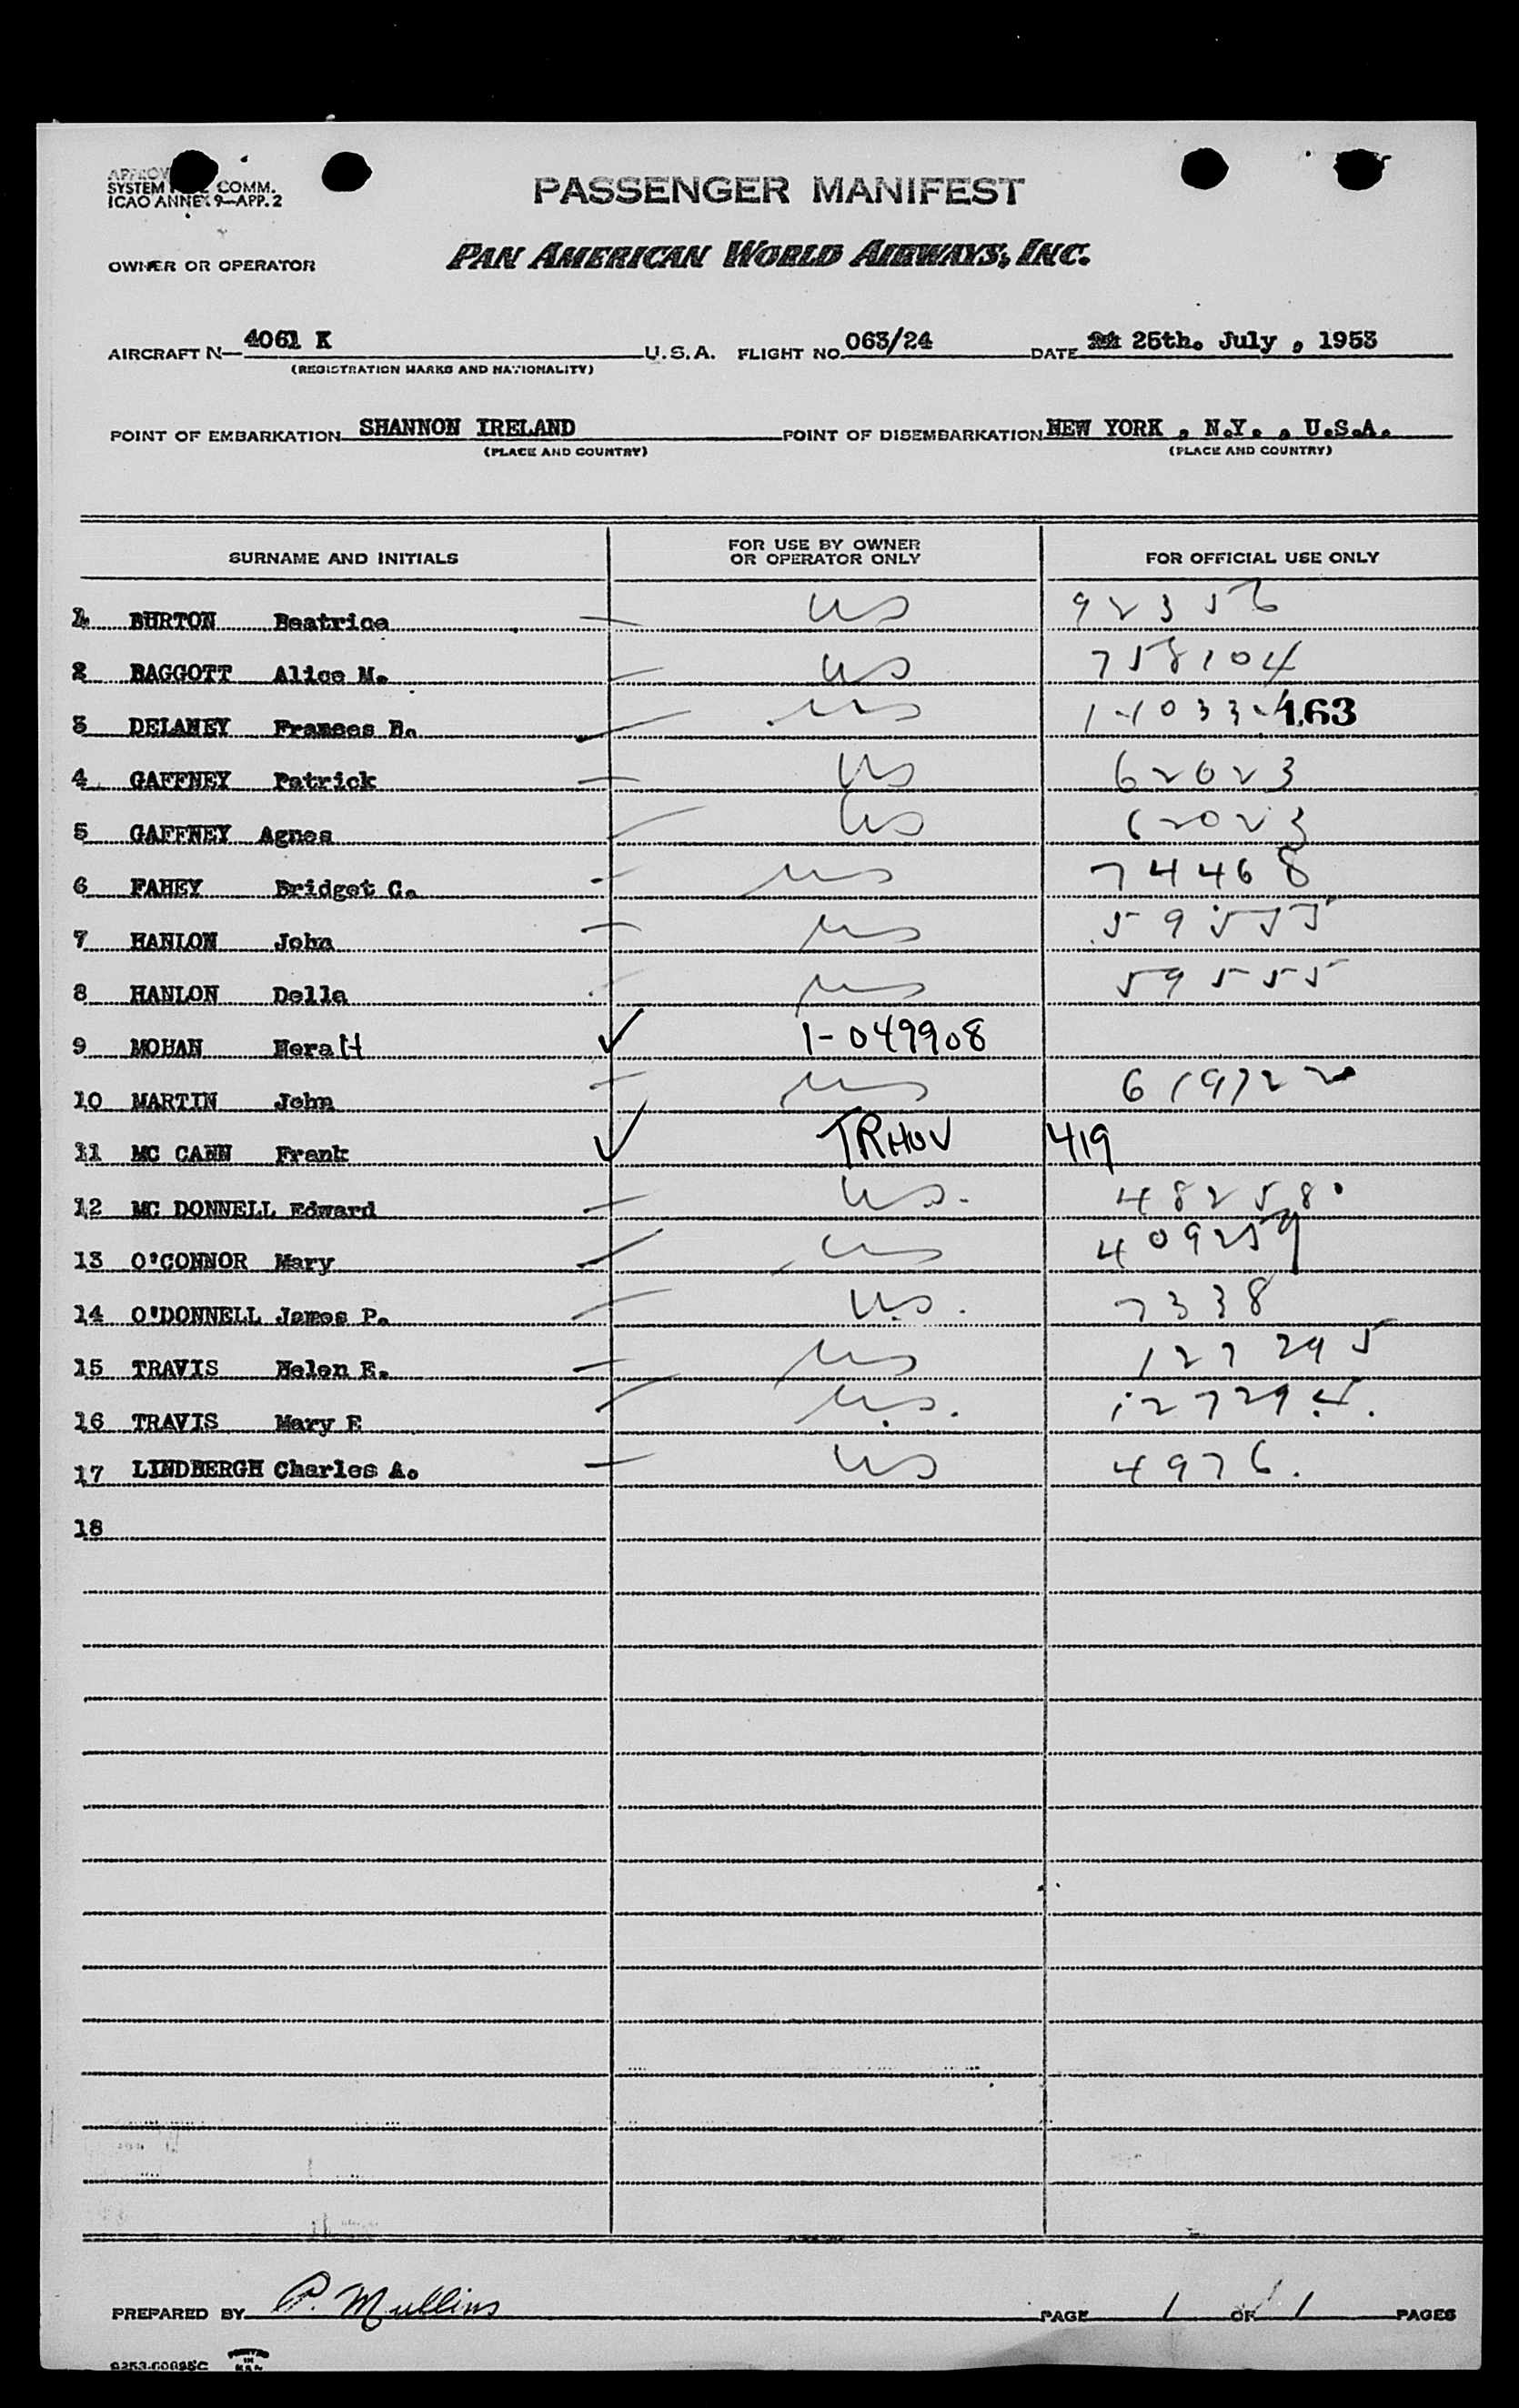 SYSTEM COMM.
ICAO ANNEX 9—APP. 2
PASSENGER MANIFEST
OWNER OR OPERATOR PAN AMERICAN WORLD AIRWAYS, INC.
AIRCRAFT N— 4061 K U.S.A. FLIGHT NO. 063/24 DATE 25th. July , 1953
(REGISTRATION MARKS AND NATIONALITY)
POINT OF EMBARKATION SHANNON IRELAND POINT OF DISEMBARKATION NEW YORK , N.Y. , U.S.A.
(PLACE AND COUNTRY) (PLACE AND COUNTRY)
SURNAME AND INITIALS FOR USE BY OWNER OR OPERATOR ONLY FOR OFFICIAL USE ONLY
1 BURTON Beatrice US 92356
2 BAGGOTT Alice M. US 758104
3 DELANEY Frances B. US 163
4 GAFFNEY Patrick US 62023
5 GAFFNEY Agnes US 62023
6 FAHEY Bridget C. US 74468
7 HANLON John US 59555
8 HANLON Della US 59555
9 MOHAN Nora H ✓ 1-049908
10 MARTIN John US 619722
11 MC CANN Frank ✓ TRHOV 419
12 MC DONNELL Edward US. 482580
13 O'CONNOR Mary US 409259
14 O'DONNELL James P. U.S. 7338
15 TRAVIS Helen E. US 127295
16 TRAVIS Mary E U.S. 127294.
17 LINDBERGH Charles A. US 4976.
18
PREPARED BY P. Mullins PAGE 1 OF 1 PAGES
PRINTED IN U.S.A.